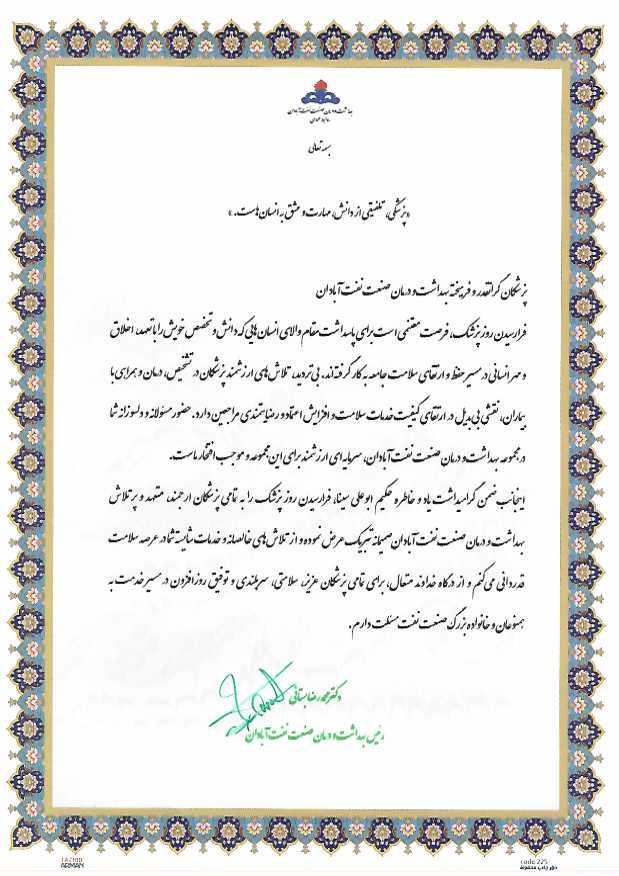 بهداشت و درمان صنعت نفت آبادان
بسمه تعالی
«پزشکی، تلفیقی از دانش، مهارت و عشق به انسان هاست.»
پزشکان گرانقدر و فرهیخته بهداشت و درمان صنعت نفت آبادان
فرارسیدن روز پزشک، فرصت مغتنمی است برای پاسداشت مقام والای انسان هایی که دانش و تخصص خویش را با تعهد، اخلاق
و مهر انسانی در مسیر حفظ و ارتقای سلامت جامعه به کار گرفته اند. بی تردید، تلاش های ارزشمند پزشکان در تشخیص، درمان و همراهی با
بیماران، نقشی بی بدیل در ارتقای کیفیت خدمات سلامت و افزایش اعتماد و رضایتمندی مراجعین دارد. حضور مسئولانه و دلسوزانه شما
در مجموعه بهداشت و درمان صنعت نفت آبادان، سرمایه ای ارزشمند برای این مجموعه و موجب افتخار ماست.
اینجانب ضمن گرامیداشت یاد و خاطره حکیم ابوعلی سینا، فرارسیدن روز پزشک را به تمامی پزشکان ارجمند، متعهد و پرتلاش
بهداشت و درمان صنعت نفت آبادان صمیمانه تبریک عرض نموده و از تلاش های خالصانه و خدمات شایسته شما در عرصه سلامت
قدردانی می کنم و از درگاه خداوند متعال، برای تمامی پزشکان عزیز، سلامتی، سربلندی و توفیق روزافزون در مسیر خدمت به
همنوعان و خانواده بزرگ صنعت نفت مسئلت دارم.
دکتر محمد رضا بستانی
رئیس بهداشت و درمان صنعت نفت آبادان
TAZHIB
ARMAN
code 225
حق چاپ محفوظ